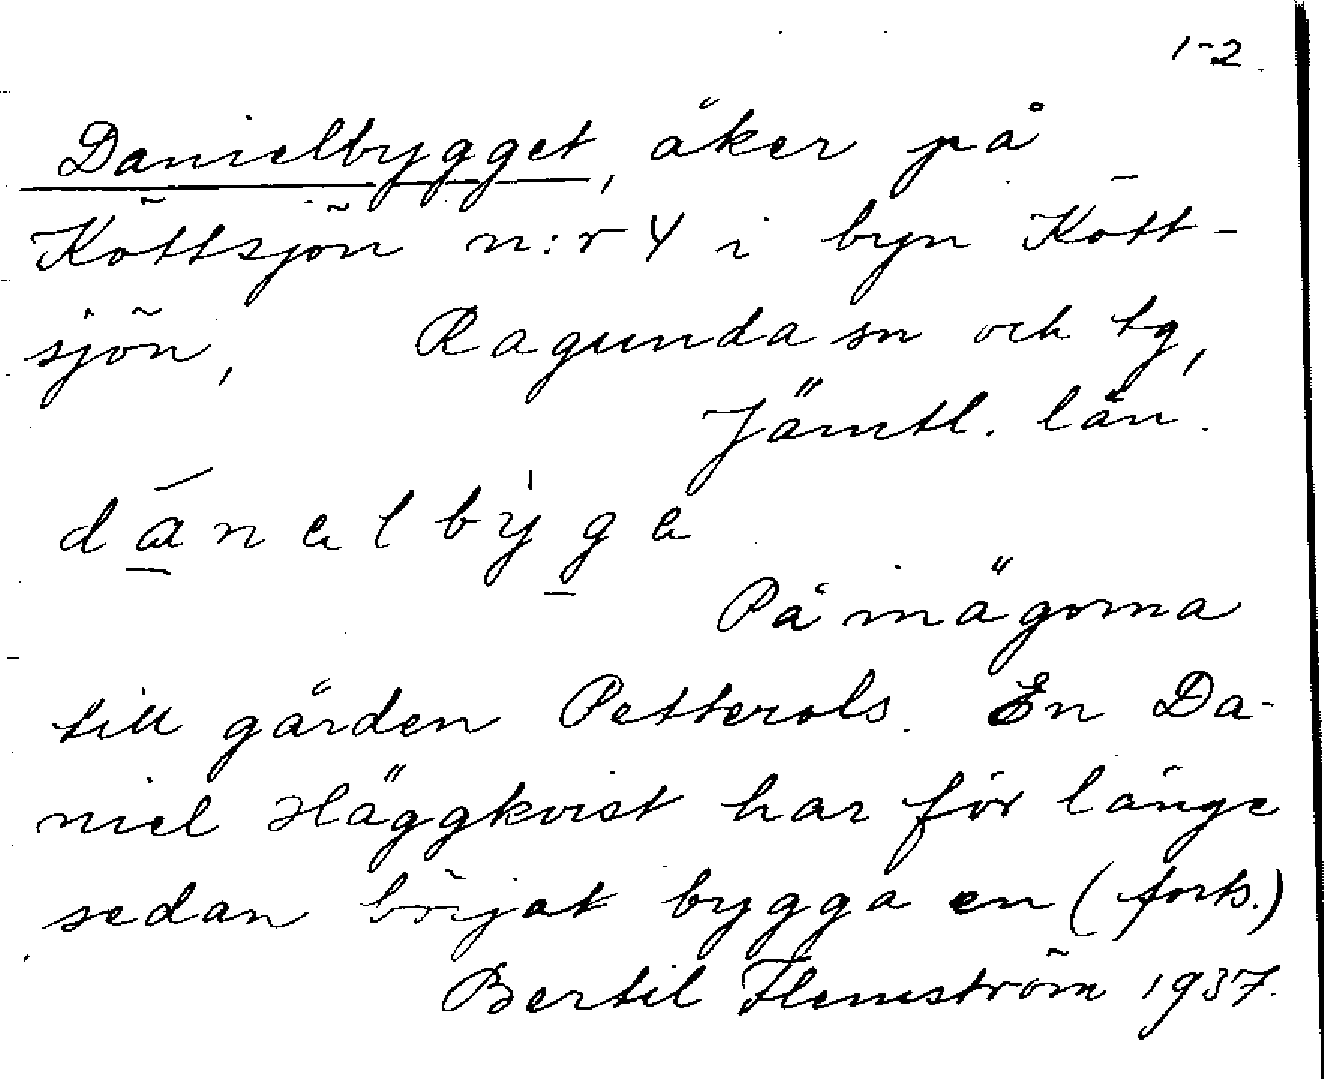 1-2
Danielbygget, åker på
Köttsjön n:r 4 i byn Kött-
sjön, Ragunda sn och tg,
Jämtl. län.
dánelbýge
På mägorna
till gården Petterols. En Da-
niel Häggkvist har för länge
sedan börjat bygga en (forts.)
Bertil Flemström 1937.